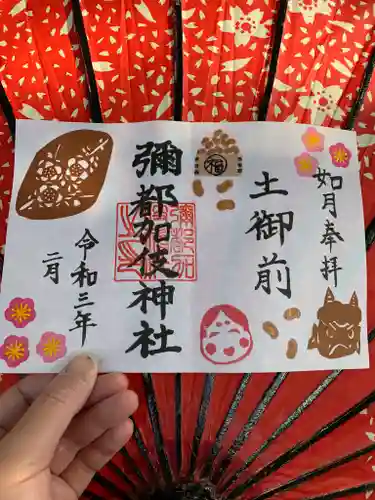 如月奉拝
土御前
福
彌都加伎神社
令和三年
二月